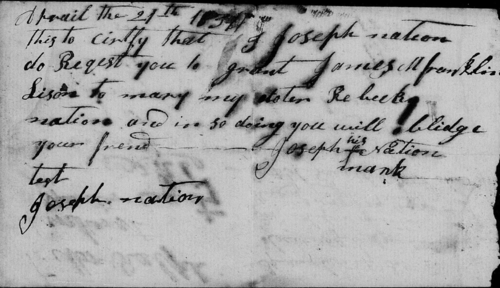 Aprail the 21th
this to cirtfy that I Joseph nation
do Reqest you to grant James M franklin
Lison to mary my doter Rebeck
nation and in so doing you will blidge
your frend Joseph his nation
mark
test
Joseph nation